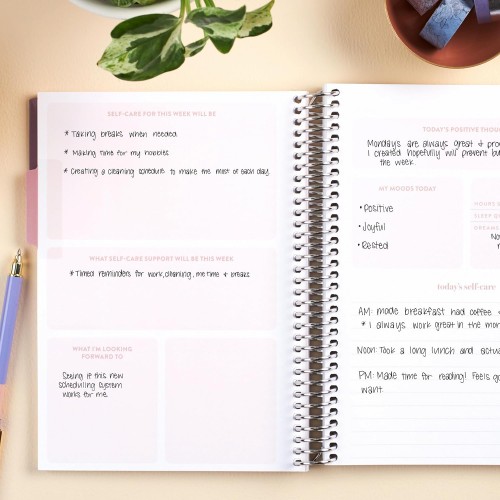 SELF-CARE FOR THIS WEEK WILL BE
* Taking breaks when needed.
* Making time for my hobbies.
* Creating a cleaning schedule to make the most of each day.
WHAT SELF-CARE SUPPORT WILL BE THIS WEEK
* Timed reminders for work, cleaning, me time & breaks
WHAT I'M LOOKING
FORWARD TO
Seeing if this new
scheduling system
works for me.
TODAY'S POSITIVE THOU
Mondays are always great & pro
I created hopefully will prevent bu
the week.
MY MOOD'S TODAY
• Positive
• Joyful
• Rested
HOURS
SLEEP
DREAMS
No
today's self-care
AM: made breakfast had coffee
* I always work great in the mor
Noon: Took a long lunch and actua
PM: Made time for reading! Feels go
want.